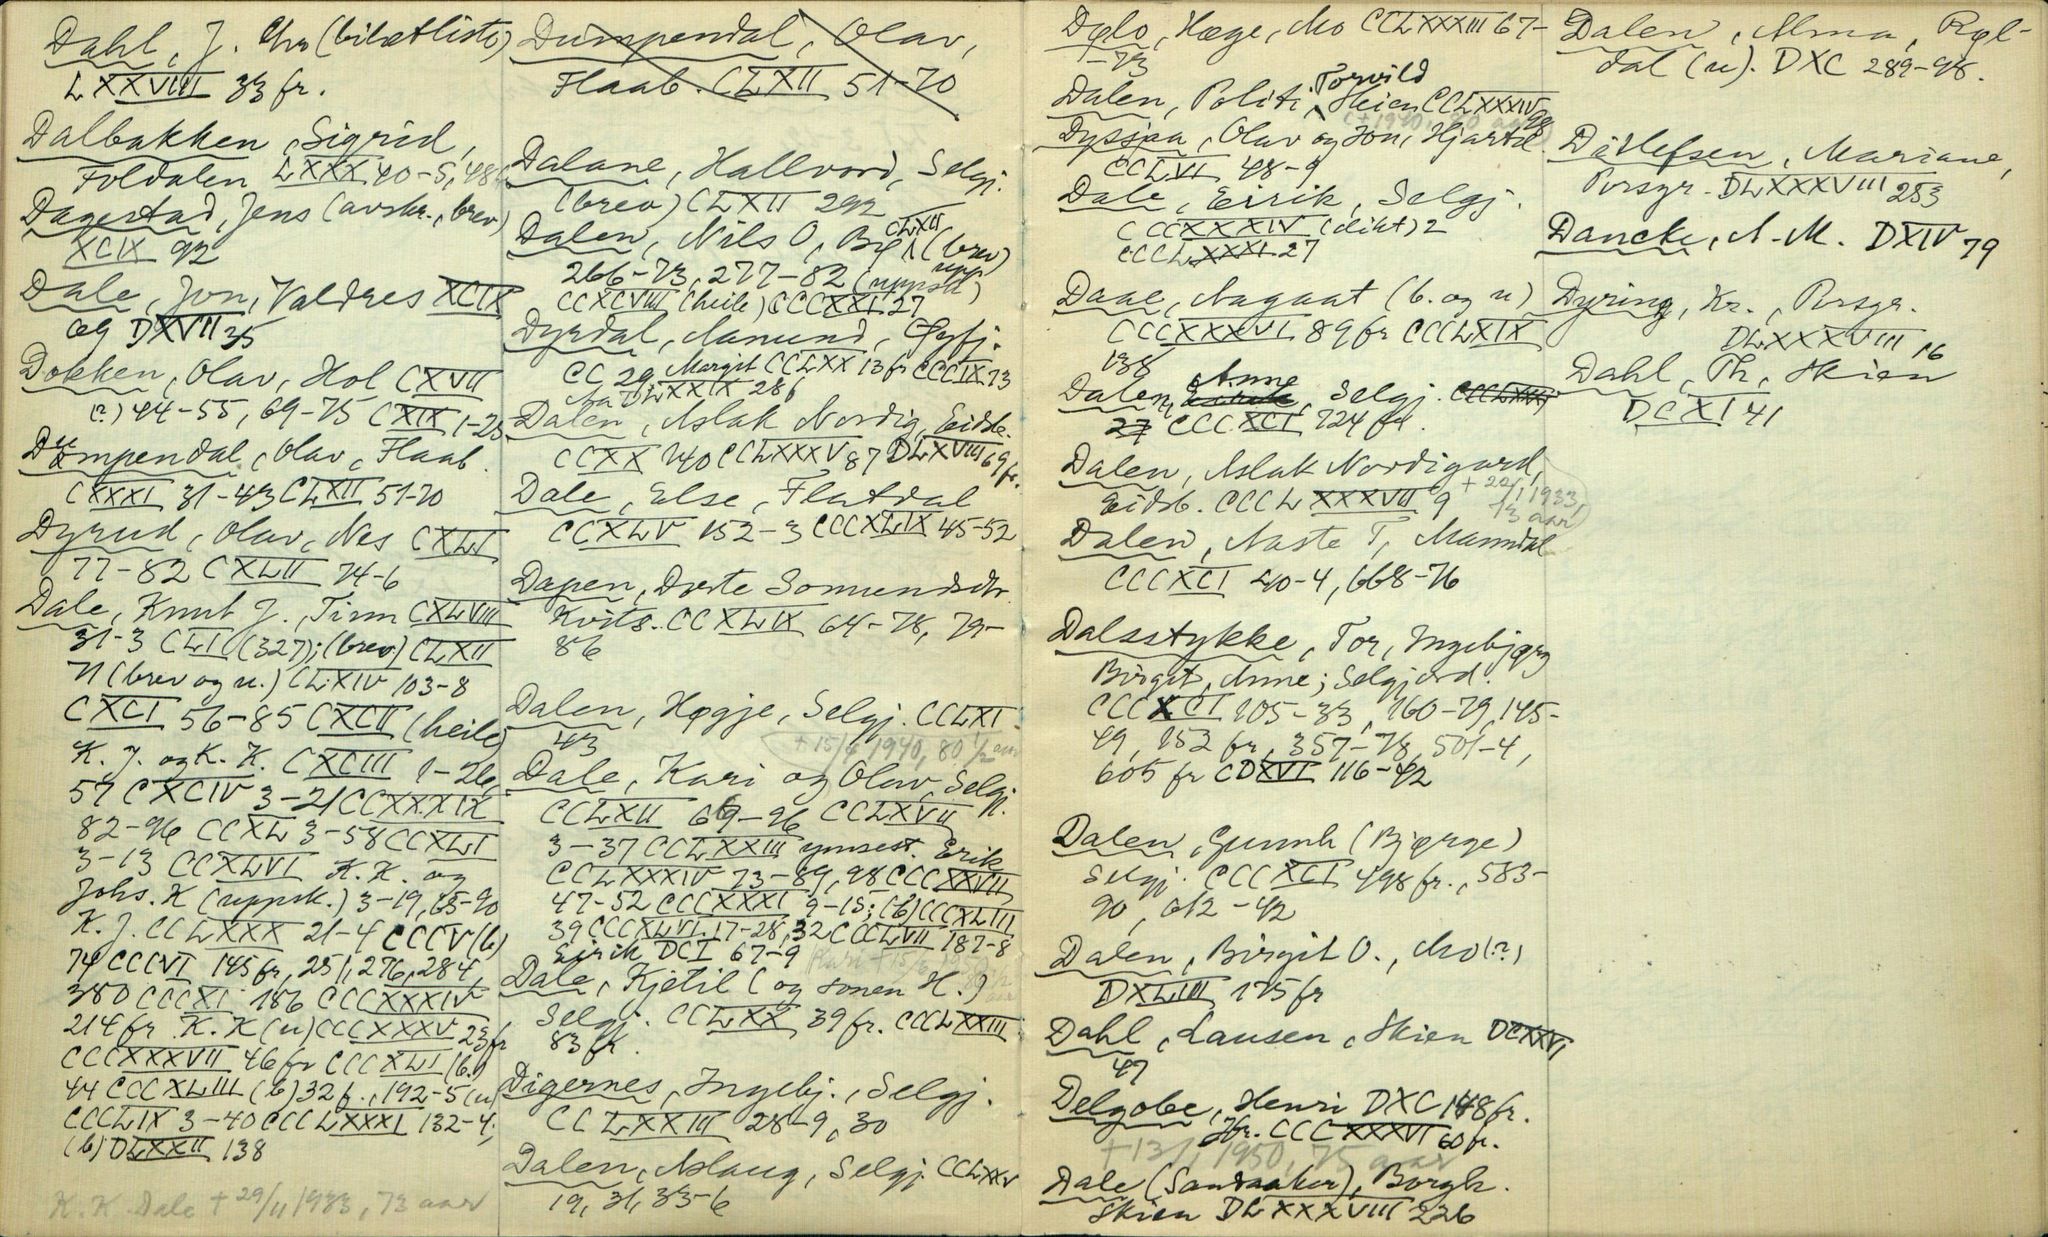 Dahl, J. Chr (bilætliste)
LXXVIII 33 fr.
Dalbakken, Sigrid,
Foldalen LXXX 40-5, 48
Dagestad, Jens (avskr., brev)
XCIX 92
Dale, Jon, Valdres XCIX
og DXVII 35
Dokken, Olav, Hol CXVII
(?) 44-55, 69-75 CXIX 1-25
Dumpendal, Olav, Flaab.
CXXXI 31-43 CLXII 51-70
Dyrud, Olav, Nes CXLI
77-82 CXLII 74-6
Dale, Knut J., Tinn CXLVIII
31-3 CLI (327); (brev) CLXII
71 (brev og u.) CLXIV 103-8
CXCI 56-85 CXCII (heile)
K. J. og K. K. CXCIII 1-26,
57 CXCIV 3-21 CCXXXIX
82-96 CCXL 3-58 CCXLI
3-13 CCXLVI K. K. og
Johs. K (uppsk.) 3-19, 65-90
K. J. CCLXXX 21-4 CCCV (b)
74 CCCVI 145 fr, 251, 276, 284,
380 CCCXI 186 CCCXXXIV
214 fr K. K (u) CCCXXXV 23 fr
CCCXXXVII 46 fr CCCXLI (b.)
44 CCCXLIII (b) 32 f., 192-5 (u)
CCCLIX 3-40 CCCLXXXI 132-4;
(b) DLXXII 138
K. K. Dale + 29/11 1933, 73 aar
Dumpendal, Olav,
Flaab. CLXII 51-70
Dalane, Hallvord, Selgj.
(brev) CLXII 292
Dalen, Nils O, Bø CLXII (brev)
266-73, 277-82 (uppsk)
CCXCVIII (heile) CCCXXI 27
Dyrdal, Aamund, Gyfj.
CC 29, Margit CCLXX 13 fr CCCIX 73
Aa DLXXIX 286
Dalen, Aslak Nordig, Eidsb.
CCXX 140 CCLXXXV 87 DLXVIII 69 fr.
Dale, Else, Flatdal
CCXLV 152-3 CCCXLIX 45-52
Dapen, Dorte Sommundsdtr
Kvits. CCXLIX 64-78, 79-
86
Dalen, Høgje, Selgj. CCLXI
43
+ 15/4 1940, 80 1/2 aar
Dale, Kari og Olav, Selgj.
CCLXII 69-96 CCLXVII
3-37 CCLXXIII ymsest. Erik
CCLXXXIV 73-89, 98 CCCXXVII
47-52 CCCXXXI 9-15; (b) CCCXLIII
39 CCCXLVI 17-28, 32 CCCLVII 187-8
Eirik DCI 67-9
Dale, Kjetil (og sonen H.)
Selgj. CCLXX 39 fr. CCCLXXIII
83 fr.
Digernes, Ingebj., Selgj.
CCLXXIII 28-9, 30
Dalen, Aslaug, Selgj. CCLXXV
19, 31, 33-6
Dylo, Hæge, Mo CCLXXXIII 67-
-73
Dalen, Politi, Torvild Skien CCLXXXIV 98
Dyssjaa, Olav og Jon, Hjartd.
CCLVI 48-9
Dale, Eirik, Selgj.
CCCXXXIV (dikt) 2
CCCLXXXI 27
Daae, Aagaat (b. og u)
CCCXXXVI 89 fr CCCLXIX
138
Dalen, Anne, Selgj. CCCLXXXI
27 CCCXCI 724 fr.
Dalen, Aslak Nordigard,
Eidsb. CCCLXXXVII 9 + 22/1 1933
73 aar
Dalen, Aaste T, Manndal
CCCXCI 40-4, 668-76
Dalsstykke, Tor, Ingebjørg
Birgit, Anne; Selgjord.
CCCXCI 105-33, 160-79, 145-
49, 152 fr, 357-78, 501-4,
605 fr CDXVI 116-42
Dalen, Gunnh (Bjørge)
Selgj. CCCXCI 498 fr., 583-
90, 612-42
Dalen, Birgit O., Mo (?)
DXLIII 175 fr
Dahl, Lausen, Skien DCXXVI
47
Delgobe, Henri DXC 148 fr.
Hr. CCCXXXVI 60 fr.
+ 13/1 1950, 75 aar
Dale (Sandaaker), Borgh.
Skien DLXXXVIII 226
Dalen, Alma, Røl-
dal (u). DXC 289-98.
Ditlefsen, Mariane,
Porsgr. DLXXXVIII 253
Dancke, A. M. DXIV 79
Dyring, Kr., Porsgr.
DLXXXVIII 16
Dahl, Th, Skien
DCXI 41